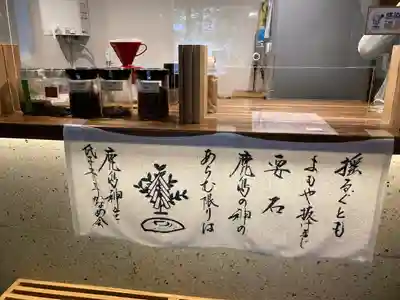 揺るぐとも
よもや抜けまじ
要石
鹿島の神の
あらむ限りは
鹿島神宮
かなめ会